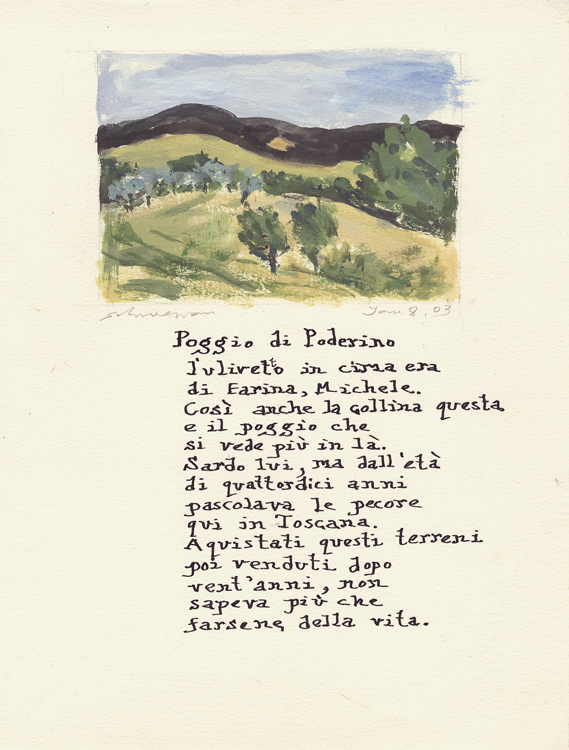 Jan 8. 03
Poggio di Poderino
l'uliveto in cima era
di Farina, Michele.
Così anche la collina questa
e il poggio che
si vede più in là.
Sardo lui, ma dall'età
di quattordici anni
pascolava le pecore
qui in Toscana.
Aquistati questi terreni
poi venduti dopo
vent'anni, non
sapeva più che
farsene della vita.